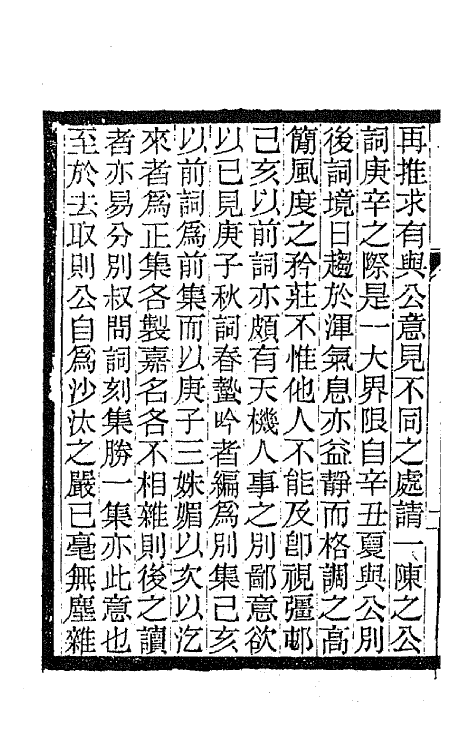 再推求有與公意見不同之處請一陳之公
詞庚辛之際是一大界限自辛丑夏與公別
後詞境日趨於渾氣息亦益靜而格調之高
簡風度之矜莊不惟他人不能及卽視彊邨
己亥以前詞亦頗有天機人事之別鄙意欲
以已見庚子秋詞春蟄吟者編爲別集己亥
以前詞爲前集而以庚子三姝媚以次以迄
來者爲正集各製嘉名各不相雜則後之讀
者亦易分別叔問詞刻集勝一集亦此意也
至於去取則公自爲沙汰之嚴已毫無塵雜